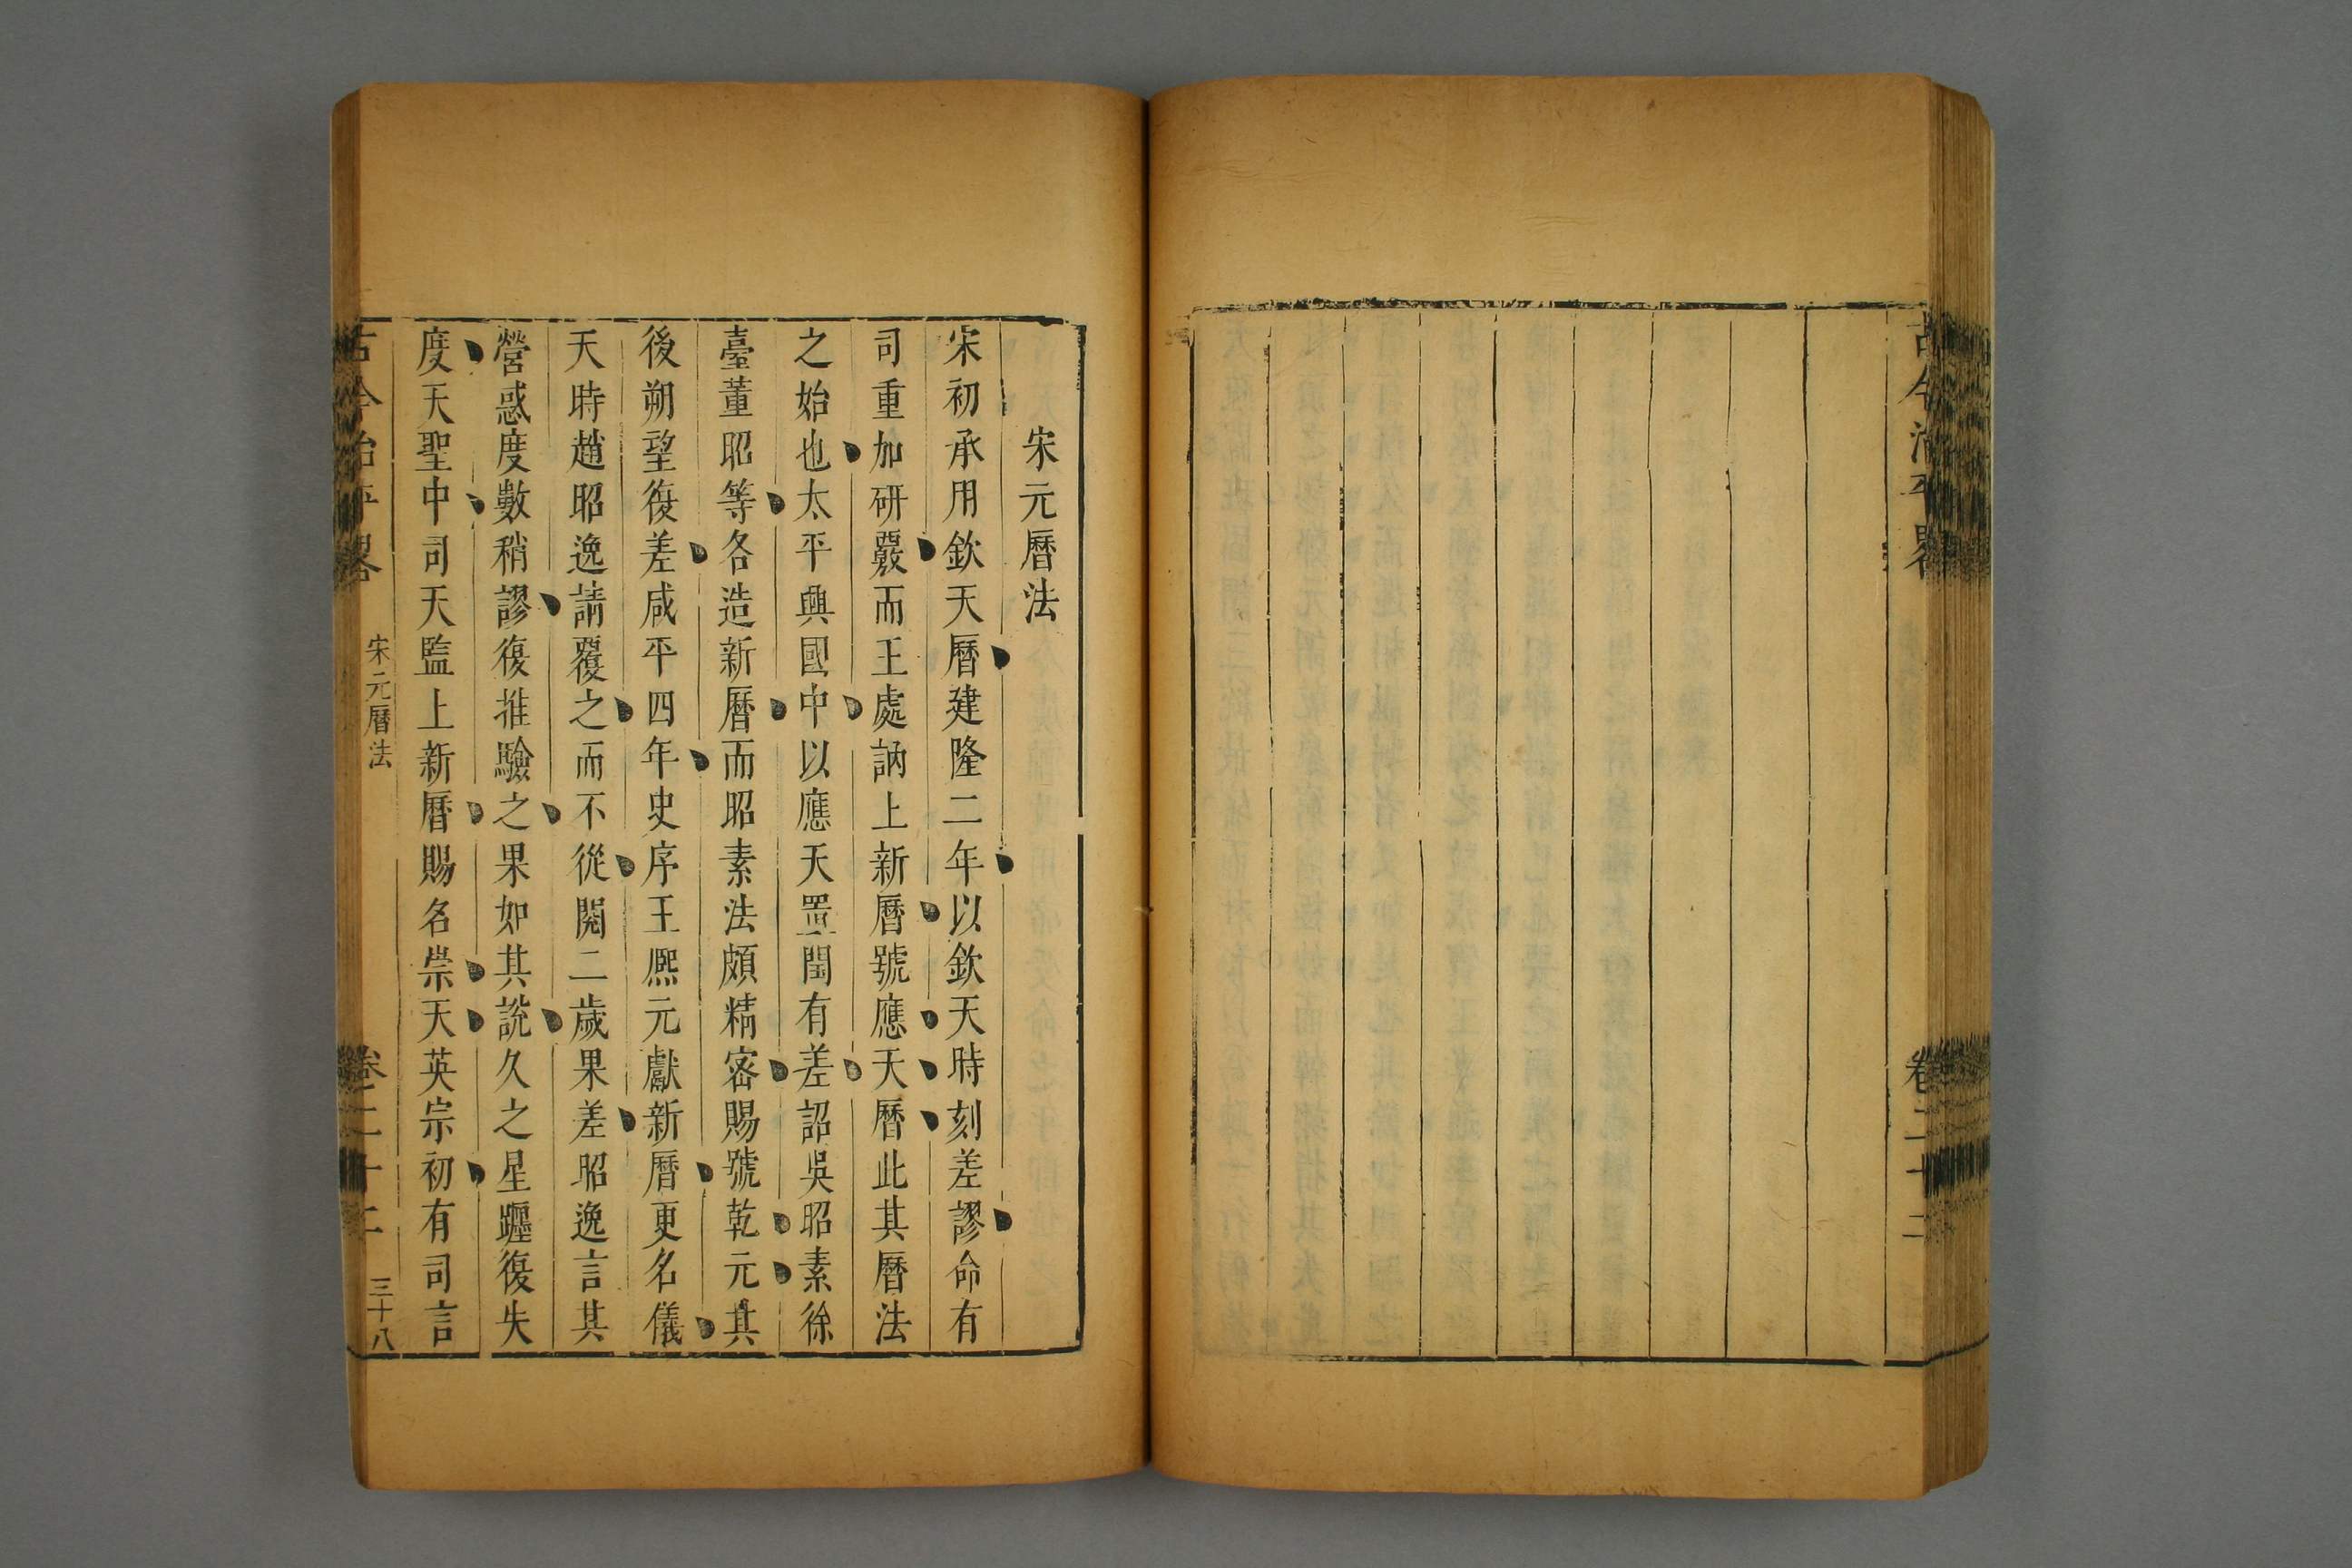 古今治平畧
卷二十二
宋元曆法
宋初承用欽天曆建隆二年以欽天時刻差謬命有
司重加研覈而王處訥上新曆號應天曆此其曆法
之始也太平興國中以應天置閏有差詔吳昭素徐
臺董昭等各造新曆而昭素法頗精密賜號乾元其
後朔望復差咸平四年史序王熈元獻新曆更名儀
天時趙昭逸請覆之而不從閱二歲果差昭逸言其
營惑度數稍謬復推驗之果如其說久之星躔復失
度天聖中司天監上新曆賜名崇天英宗初有司言
古今治平畧
宋元曆法
卷二十二
三十八